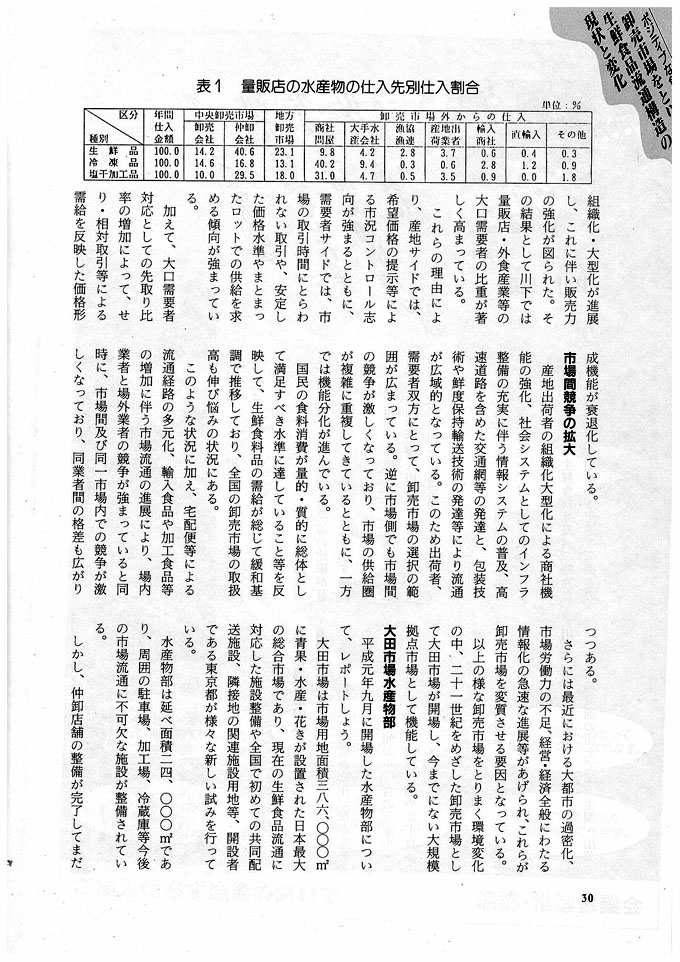 ポジティブな
卸売市場をとい
生鮮食品流通構造の
現状と変化
表1 量販店の水産物の仕入先別仕入割合
単位:%
区分 種別 年間仕入金額 中央卸売市場 卸売会社 仲卸会社 地方卸売市場 卸売市場外からの仕入 商社問屋 大手水産会社 漁協漁連 産地出荷業者 輸入商社 直輸入 その他
生鮮品 100.0 14.2 40.6 23.1 9.8 4.2 2.8 3.7 0.6 0.4 0.3
冷凍品 100.0 14.6 16.8 13.1 40.2 9.4 0.3 0.6 2.8 1.2 0.9
塩干加工品 100.0 10.0 29.5 18.0 31.0 4.7 0.5 3.5 0.9 0.0 1.8
組織化・大型化が進展
し、これに伴い販売力
の強化が図られた。そ
の結果として川下では
量販店・外食産業等の
大口需要者の比重が著
しく高まっている。
これらの理由によ
り、産地サイドでは、
希望価格の提示等によ
る市況コントロール志
向が強まるとともに、
需要者サイドでは、市
場の取引時間にとらわ
れない取引や、安定し
た価格水準やまとまっ
たロットでの供給を求
める傾向が強まってい
る。
加えて、大口需要者
対応としての先取り比
率の増加によって、せ
り・相対取引等による
需給を反映した価格形
成機能が衰退化している。
市場間競争の拡大
産地出荷者の組織化大型化による商社機
能の強化、社会システムとしてのインフラ
整備の充実に伴う情報システムの普及、高
速道路を含めた交通網等の発達と、包装技
術や鮮度保持輸送技術の発達等により流通
が広域的となっている。このため出荷者、
需要者双方にとって、卸売市場の選択の範
囲が広まっている。逆に市場側でも市場間
の競争が激しくなっており、市場の供給圏
が複雑に重複してきているとともに、一方
では機能分化が進んでいる。
国民の食料消費が量的・質的に総体とし
て満足すべき水準に達していること等を反
映して、生鮮食料品の需給が総じて緩和基
調で推移しており、全国の卸売市場の取扱
高も伸び悩みの状況にある。
このような状況に加え、宅配便等による
流通経路の多元化、輸入食品や加工食品等
の増加に伴う市場流通の進展により、場内
業者と場外業者の競争が強まっていると同
時に、市場間及び同一市場内での競争が激
しくなっており、同業者間の格差も広がり
つつある。
さらには最近における大都市の過密化、
市場労働力の不足、経営・経済全般にわたる
情報化の急速な進展等があげられ、これらが
卸売市場を変質させる要因となっている。
以上の様な卸売市場をとりまく環境変化
の中、二十一世紀をめざした卸売市場とし
て大田市場が開場し、今までにない大規模
拠点市場として機能している。
大田市場水産物部
平成元年九月に開場した水産物部につい
て、レポートしょう。
大田市場は市場用地面積三八六、〇〇〇㎡
に青果・水産・花きが設置された日本最大
の総合市場であり、現在の生鮮食品流通に
対応した施設整備や全国で初めての共同配
送施設、隣接地の関連施設用地等、開設者
である東京都が様々な新しい試みを行って
いる。
水産物部は延べ面積二四、〇〇〇㎡であ
り、周囲の駐車場、加工場、冷蔵庫等今後
の市場流通に不可欠な施設が整備されてい
る。
しかし、仲卸店舗の整備が完了してまだ
30